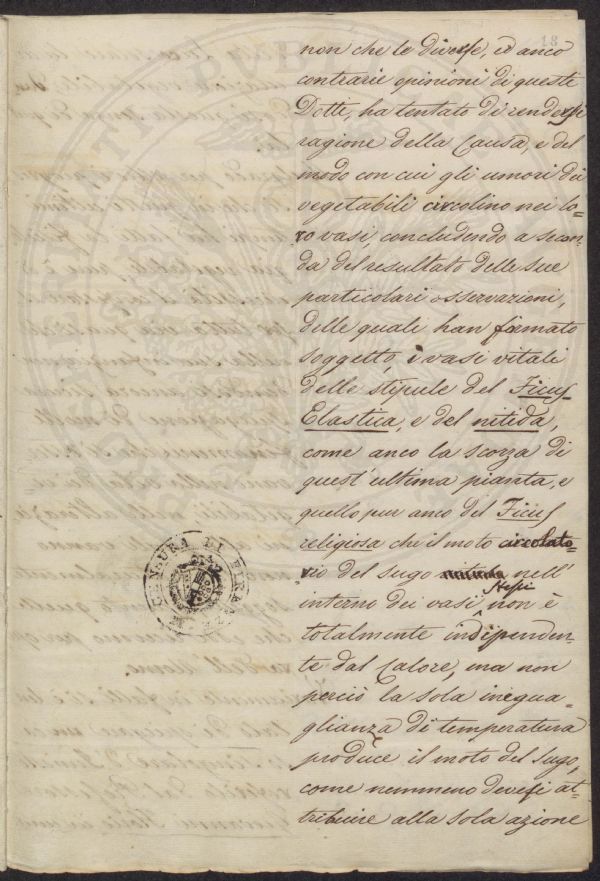 18
non che le diverse, ed anco
contrarie opinioni di questi
Dotti, ha tentato di rendersi
ragione della Causa, e del
modo con cui gli umori dei
vegetabili circolino nei lo=
ro vasi, concludendo a secon=
da del resultato delle sue
particolari osservazioni,
delle quali han formato
soggetto, i vasi vitali
delle stipule del Ficus
Elastica, e del nitida,
come anco la scorza di
quest'ultima pianta, e
quello pur anco del Ficus
religiosa che il moto circolato=
rio del sugo nell'
interno dei vasi stessi non è
totalmente indipenden=
te dal Calore, ma non
perciò la sola inegua=
glianza di temperatura
produce il moto del sugo,
come nemmeno devesi at=
tribuire alla sola azione
CENSURA DI FIRENZE